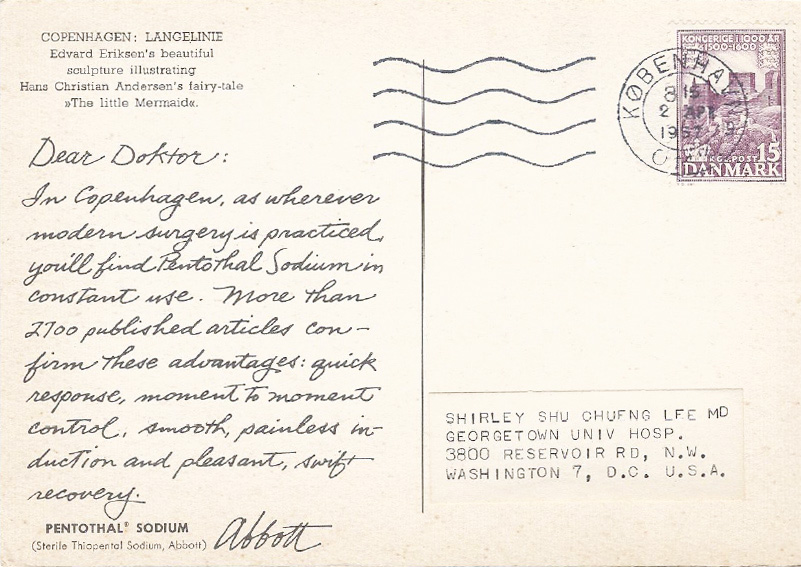 COPENHAGEN: LANGELINIE
Edvard Eriksen's beautiful
sculpture illustrating
Hans Christian Andersen's fairy-tale
»The little Mermaid«.
Dear Doktor:
In Copenhagen, as wherever
modern surgery is practiced,
you'll find Pentothal Sodium in
constant use. More than
2700 published articles con-
firm these advantages: quick
response, moment to moment
control, smooth, painless in-
duction and pleasant, swift
recovery.
PENTOTHAL® SODIUM
(Sterile Thiopental Sodium, Abbott)
Abbott
KØBENHAVN
8 15
2 APR
1957
KONGERIGE I 1000 ÅR
1500-1600
KGL POST 15
DANMARK
SHIRLEY SHU CHUFNG LEE MD
GEORGETOWN UNIV HOSP.
3800 RESERVOIR RD, N.W.
WASHINGTON 7, D.C. U.S.A.